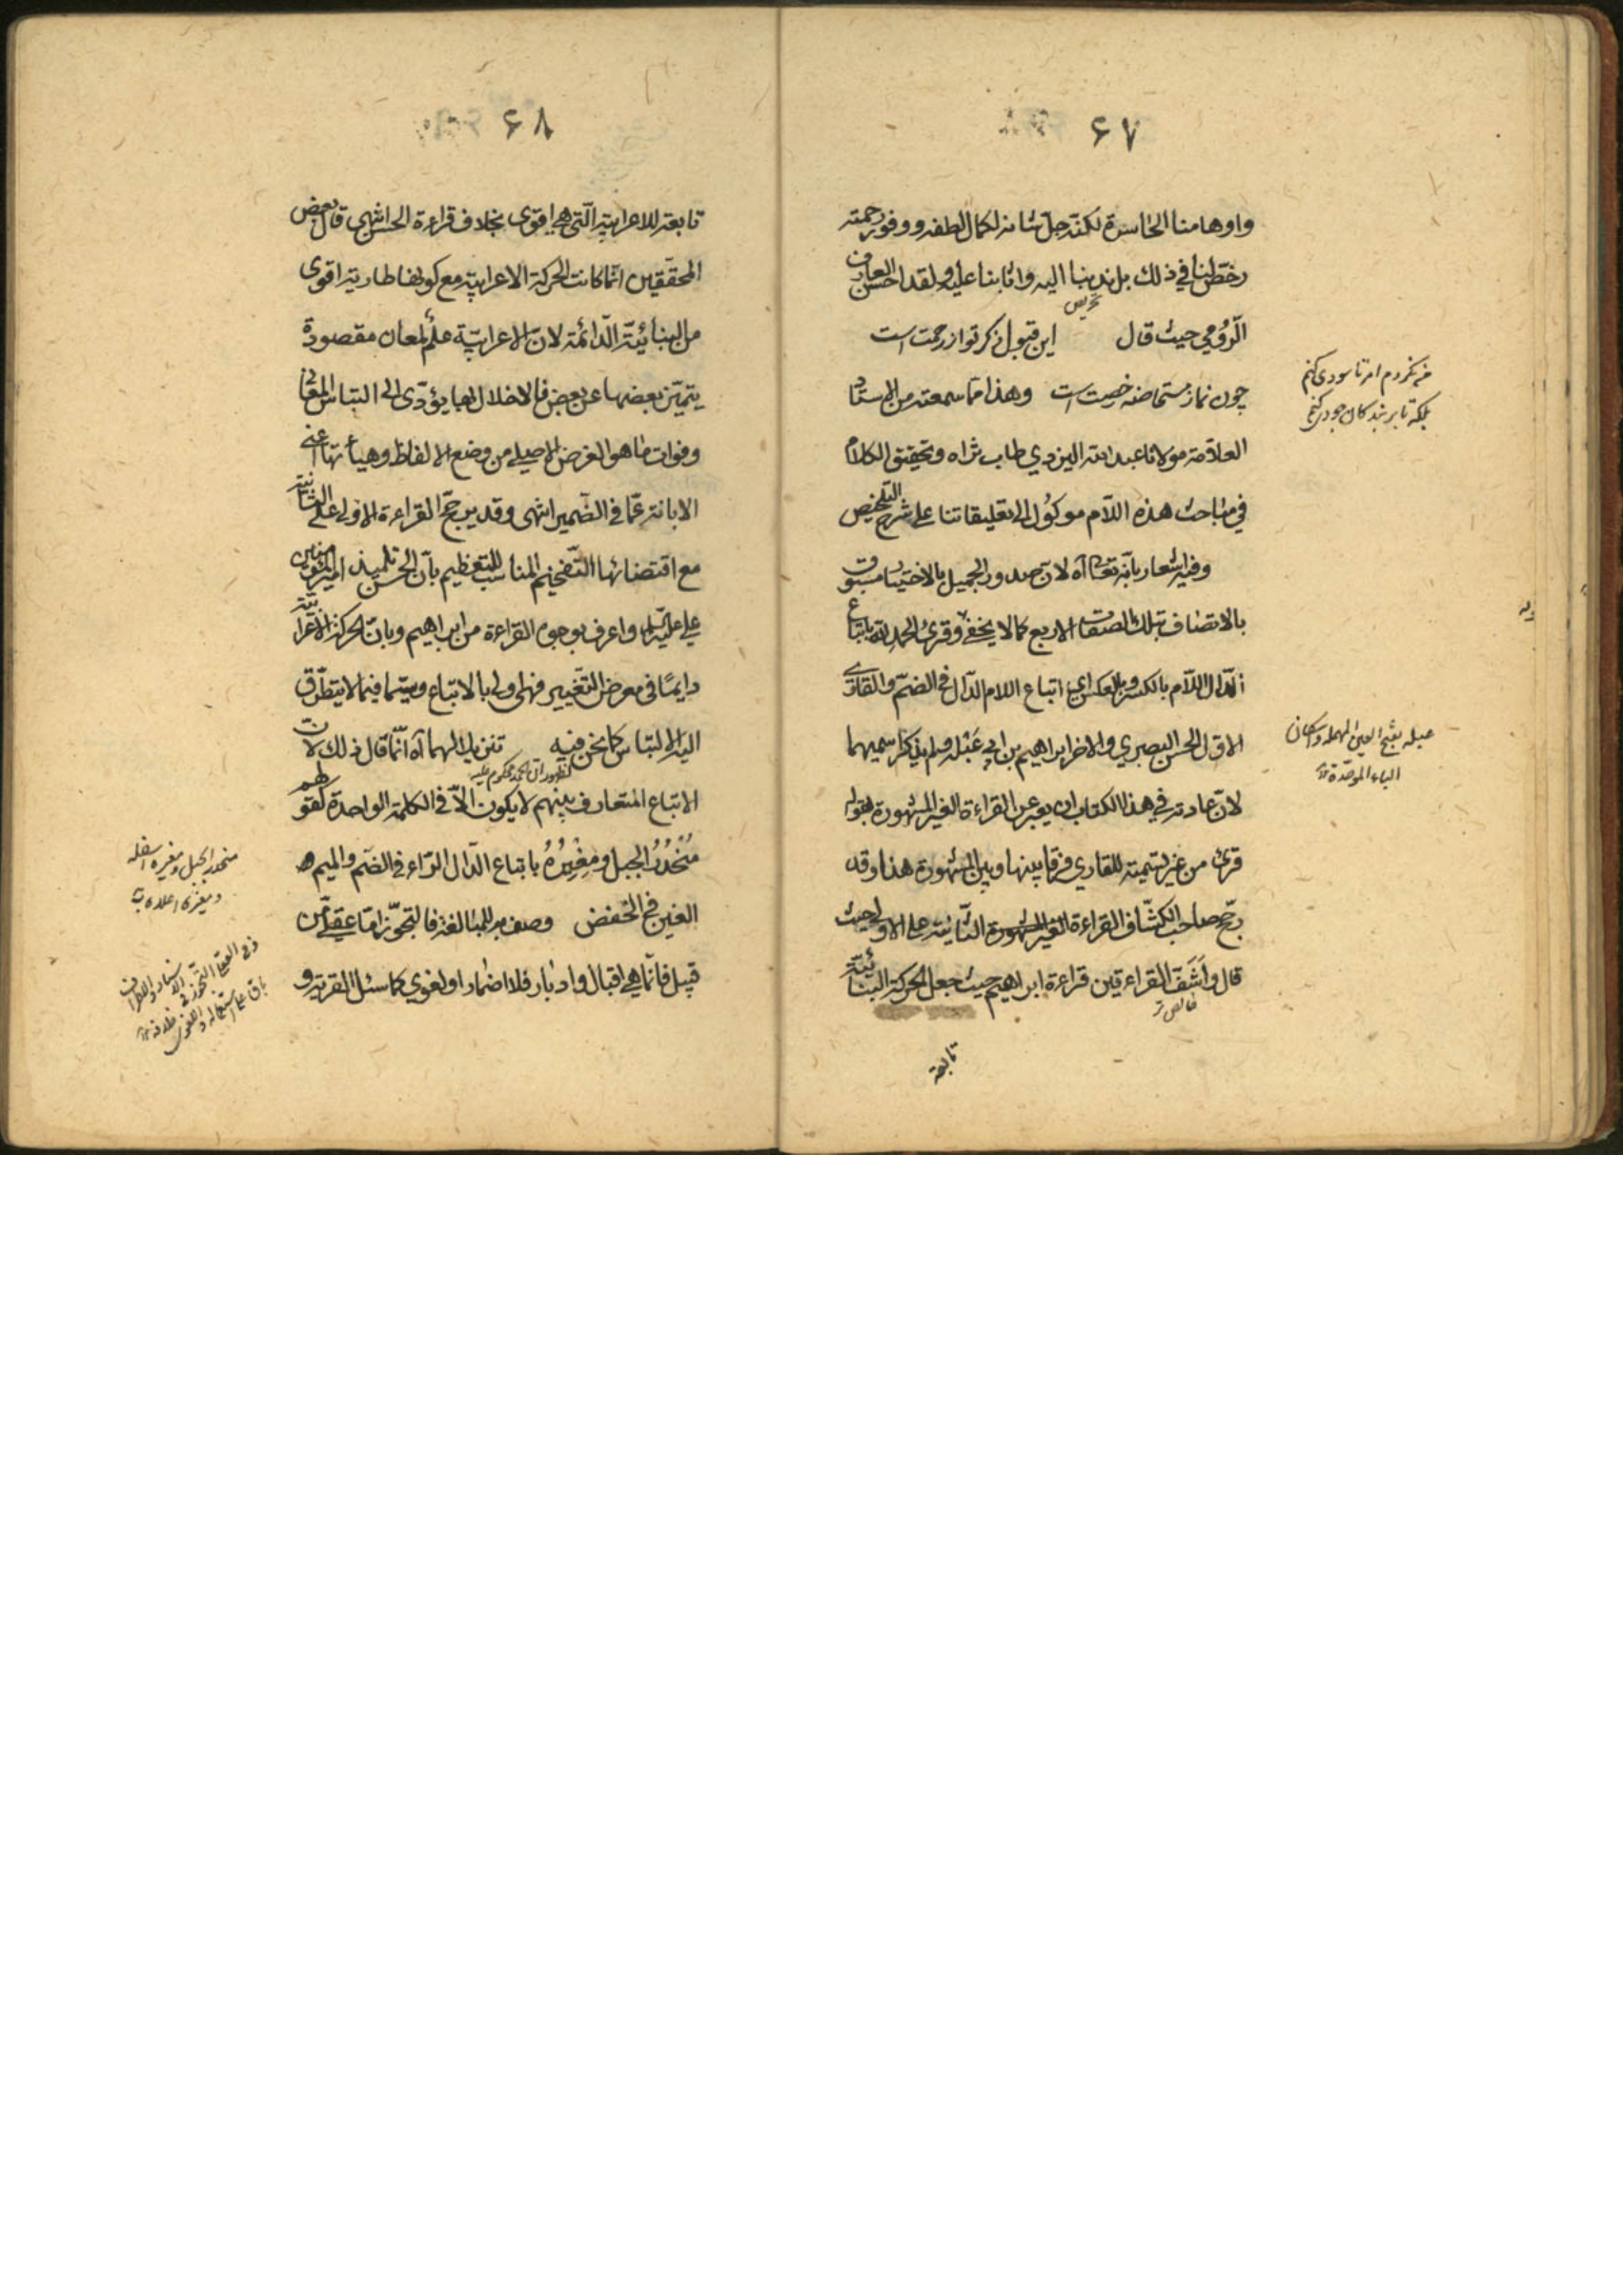 ۶۷
واوهامنا الخاسرة لكنه جل شانه لكمال لطفه ووفور رحمته
رخّص لنا في ذلك بل ندبنا اليه واثابنا عليه ولقد احسن العارف
الرّومي حيث قال این قبول ذکر تو از رحمت است
چون نماز مستحاضه رخصت است وهذا مما سمعته من الاستاد
العلّامة مولانا عبد الله اليزدي طاب ثراه وتحقيق الكلام
في مباحث هذه اللّام موكول الى تعليقاتنا على شرح التلخيص
وفيه اشعار بانّه تعالى آه لان صدور الجميل بالاختيار مسبوق
بالاتصاف بتلك الصفات الاربع كما لا يخفى وقرئ الحمد لله باتباع
الدّال اللّام بالكسر وبالعكس اي اتباع اللام الدّال في الضمّ والقاري
الاوّل الحسن البصري والاخر ابراهيم بن ابي عَبْلة ولم يذكر اسميهما
لانّ عادته في هذا الكتاب ان يعبر عن القراءة الغير المشهورة بقوله
قرئ من غير تسمية للقاري فرقا بينها وبين المشهورة هذا وقد
رجّح صاحب الكشّاف القراءة الغير المشهورة الثّانية على الاولى حيث
قال واَشَفّ القراءتين قراءة ابراهيم حيث جعل الحركة البنائيّة
تابعة
من نکردم امر تا سودی کنم
بلکه تا بر بندگان جودی کنم
عبله بفتح العين المهملة واسكان
الباء الموحّدة
۶۸
تابعة للاعرابيّة الّتي هي اقوى بخلاف قراءة الحسن انتهى قال بعض
المحقّقين انّما كانت الحركة الاعرابيّة مع كونها طارية اقوى
من البنائيّة الدّائمة لانّ الاعرابيّة علم لمعان مقصودة
يتميّز بعضها عن بعض فالاخلال بها يؤدّى الى التباس المعاني
وفوات ما هو الغرض الاصلي من وضع الالفاظ وهيأتها اعني
الابانة عمّا في الضمير انتهى وقد يرجّح القراءة الاولى على الثانية
مع اقتضائها التّفخيم المناسب للتعظيم بانّ الحسن تلميذ امير المؤمنين
علي عليه السلام واعرف بوجوه القراءة من ابراهيم وبانّ الحركة الاعرابيّة
دايمًا في معرض التّغيير فهي اولى بالاتباع وسيّما فيما لا يتطرّق
اليه الالتباس كما نحن فيه تنزيلا لهما آه انّما قال ذلك لان
لظهور ان الحمد محكوم عليه
الاتباع المتعارف بينهم لا يكون الّا في الكلمة الواحدة كقولهم
مُنْحُدُرُ الجبل ومِغِيرة باتباع الدّال الرّاء في الضّم والميم
الغين في الخفض وصف به للمبالغة فالتجوّز امّا عقلي من
قبيل فانّما هي اقبال وادبار فلا اضمار او لغوي كاسئل القرية و
منحدر الجبل اسفله